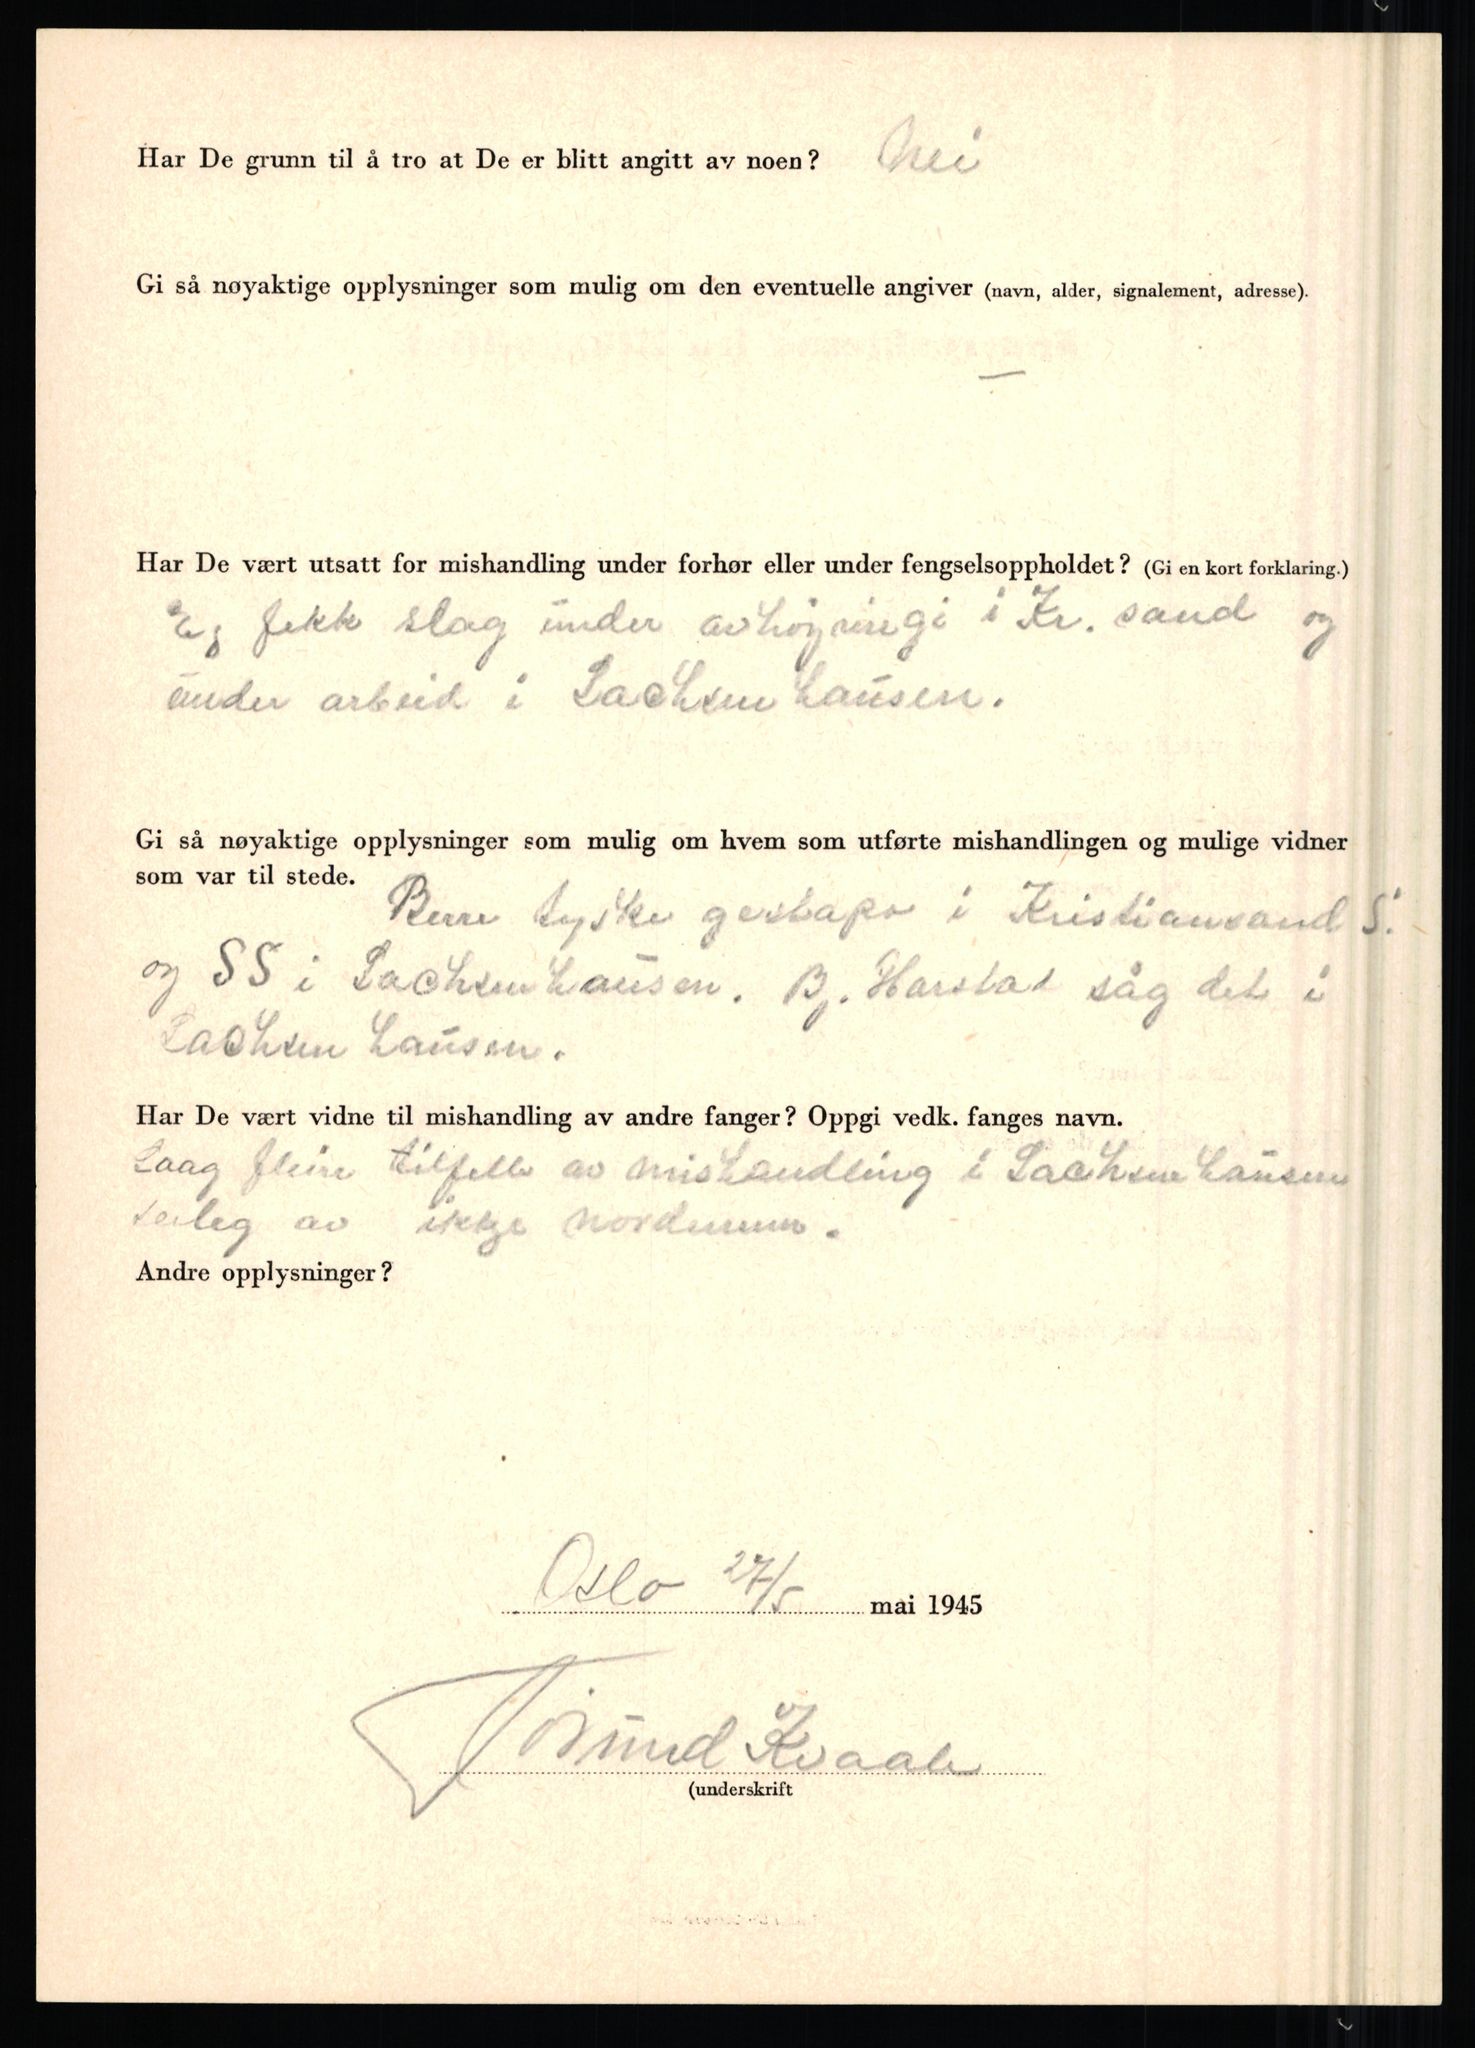 Har De grunn til å tro at De er blitt angitt av noen? Nei
Gi så nøyaktige opplysninger som mulig om den eventuelle angiver (navn, alder, signalement, adresse).
—
Har De vært utsatt for mishandling under forhør eller under fengselsoppholdet? (Gi en kort forklaring.)
Eg fekk slag under avhøyringi i Kr. sand og
under arbeid i Sachsenhausen.
Gi så nøyaktige opplysninger som mulig om hvem som utførte mishandlingen og mulige vidner
som var til stede.
Berre tyske gestapo i Kristiansand S.
og SS i Sachsenhausen. Bj. Harstad såg det i
Sachsenhausen.
Har De vært vidne til mishandling av andre fanger? Oppgi vedk. fanges navn.
Saag fleire tilfelle av mishandling i Sachsenhausen
serleg av ikkje nordmenn.
Andre opplysninger?
Oslo 27/5 mai 1945
Kvaale
(underskrift